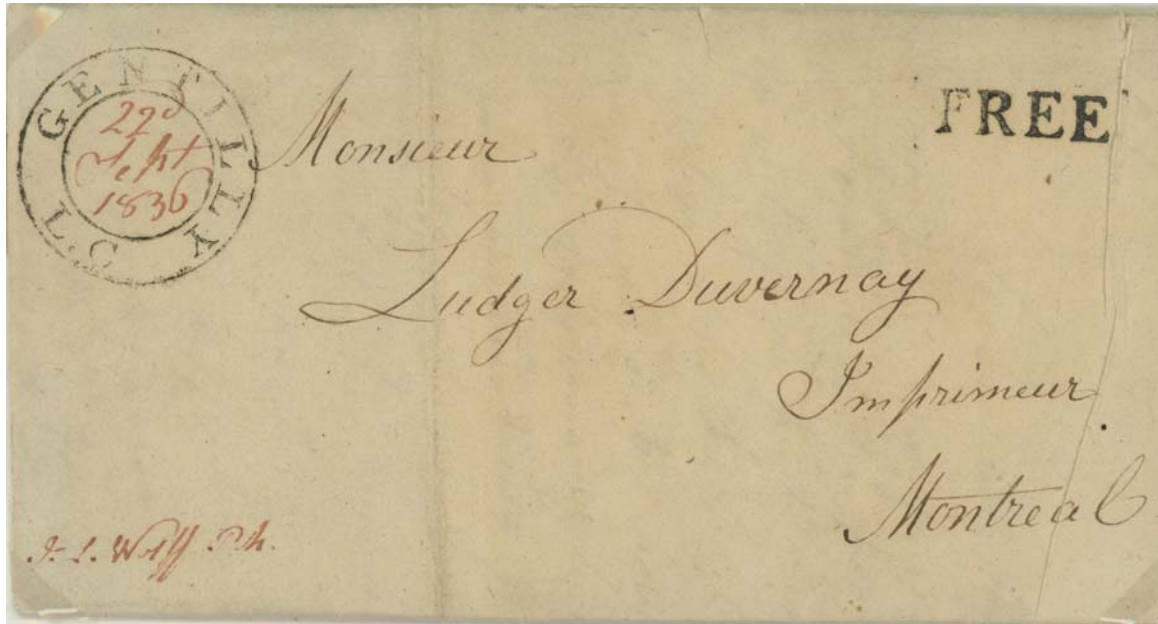 GENTILLY L.C
22d
Sept
1836
FREE
Monsieur
Ludger Duvernay
Imprimeur
Montreal
Wolff P.M.